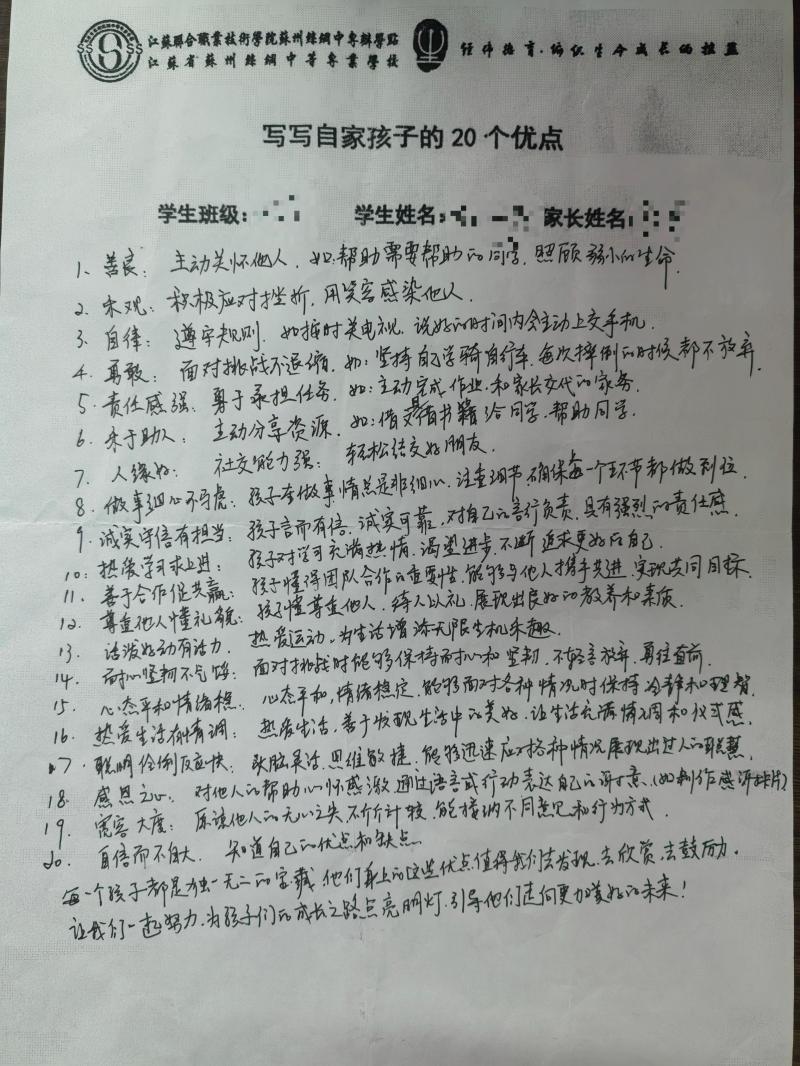 江蘇聯合職業技術學院蘇州絲綢中專辦學點
江蘇省蘇州絲綢中等專業學校
经纬培育·编织生命成长的摇篮
写写自家孩子的20个优点
学生班级: 学生姓名: 家长姓名:
1、善良: 主动关怀他人, 如:帮助需要帮助的同学, 照顾弱小的生命.
2、乐观: 积极应对挫折, 用笑容感染他人.
3、自律: 遵守规则. 如按时关电视, 说好的时间内会主动上交手机.
4、勇敢: 面对挑战不退缩, 如: 坚持自己学骑自行车, 每次摔倒的时候都不放弃.
5、责任感强: 勇于承担任务, 如: 主动完成作业, 和家长交代的家务.
6、乐于助人: 主动分享资源, 如: 借书籍给同学, 帮助同学.
7、人缘好: 社交能力强: 轻松结交好朋友.
8、做事细心不马虎: 孩子在做事情总是非细心, 注意细节, 确保每一个环节都做到位.
9、诚实守信有担当: 孩子言而有信, 诚实可靠, 对自己的言行负责, 具有强烈的责任感.
10: 热爱学习求上进: 孩子对学习充满热情, 渴望进步, 不断追求更好的自己.
11、善于合作促共赢: 孩子懂得团队合作的重要性, 能够与他人携手共进, 实现共同目标.
12、尊重他人懂礼貌: 孩子懂尊重他人, 待人以礼, 展现出良好的教养和素质.
13、活泼好动有活力: 热爱运动, 为生活增添无限生机乐趣.
14、耐心坚韧不气馁: 面对挑战时能够保持耐心和坚韧, 不轻言放弃, 勇往直前.
15、心态平和情绪稳: 心态平和, 情绪稳定, 能够面对各种情况时保持冷静和理智.
16、热爱生活有情调: 热爱生活, 善于发现生活中的美好, 让生活充满情调和仪式感.
17、聪明伶俐反应快: 头脑灵活, 思维敏捷, 能够迅速应对各种情况展现出过人的聪慧.
18、感恩之心: 对他人的帮助心怀感激, 通过语言或行动表达自己的谢意, (如制作感谢卡片)
19、宽容大度: 原谅他人的无心之失, 不斤斤计较, 能接纳不同意见和行为方式.
20、自信而不自大, 知道自己的优点和缺点.
每一个孩子都是独一无二的宝藏, 他们身上的这些优点值得我们去发现, 去欣赏, 去鼓励.
让我们一起努力, 为孩子们的成长之路点亮明灯, 引导他们走向更加美好的未来!